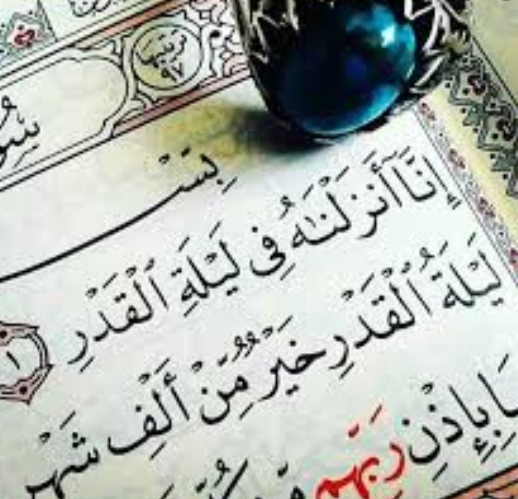 ترتيبها
٩٧
بِسْ
إِنَّآ أَنزَلْنَٰهُ فِى لَيْلَةِ ٱلْقَدْرِ ١
لَيْلَةُ ٱلْقَدْرِ خَيْرٌ مِّنْ أَلْفِ شَهْرٍ
بِإِذْنِ رَبِّهِم